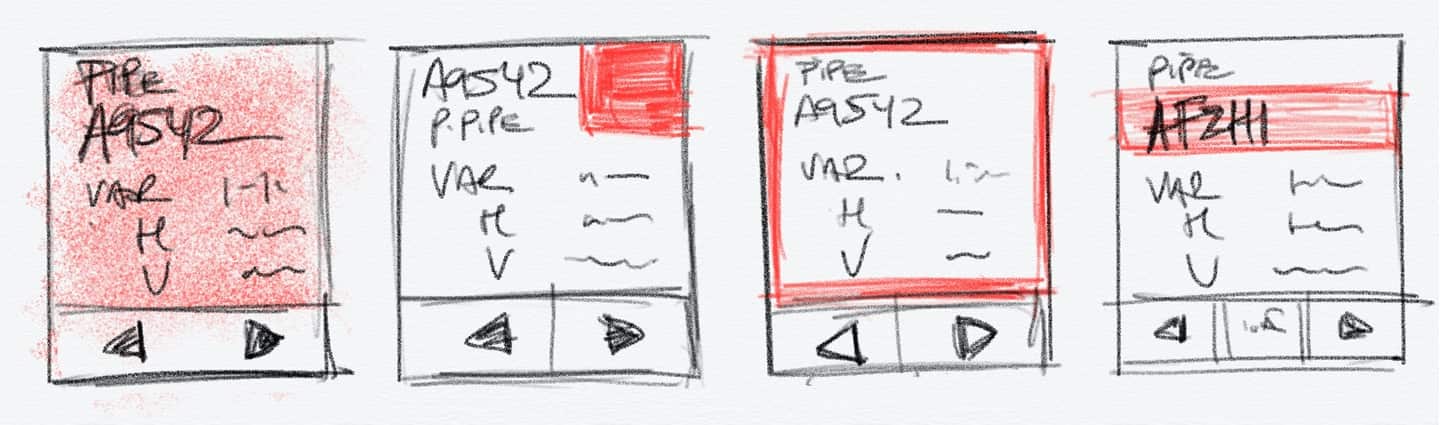 PIPE
A9542
VAR
H
V
A9542
P.PIPE
VAR
H
V
PIPE
A9542
VAR.
H
V
PIPE
AFZHI
VAR
H
V